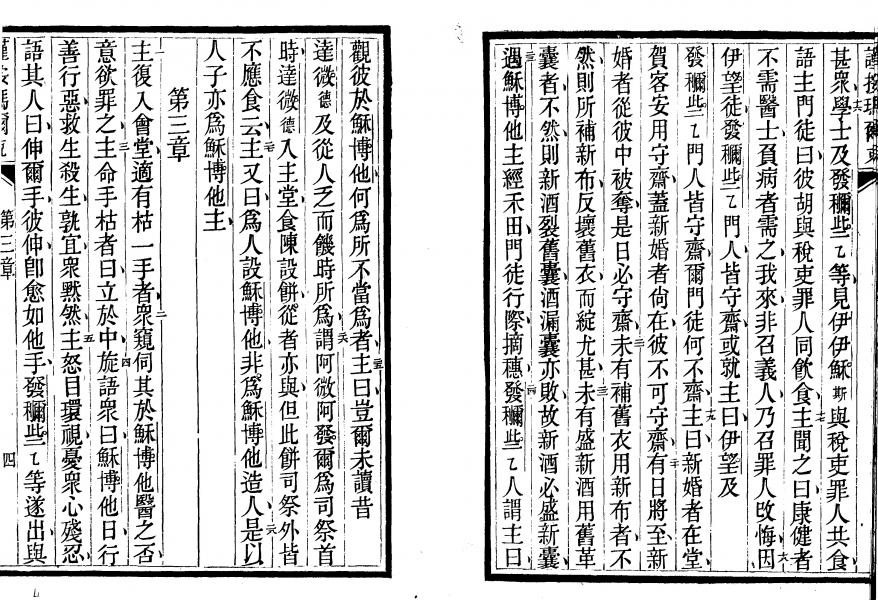 甚眾學士及發穪些乙等見伊伊穌斯與稅吏罪人共食
語主門徒曰彼胡與稅吏罪人同飲食主聞之曰康健者
不需醫士負病者需之我來非召義人乃召罪人攺悔因
伊望徒發穪些乙門人皆守齋或就主曰伊望及
發穪些乙門人皆守齋爾門徒何不齋主曰新婚者在堂
賀客安用守齋蓋新婚者尙在彼不可守齋有日將至新
婚者從彼中被奪是日必守齋未有補舊衣用新布者不
然則所補新布反壞舊衣而綻尤甚未有盛新酒用舊革
囊者不然則新酒裂舊囊酒漏囊亦敗故新酒必盛新囊
遇穌博他主經禾田門徒行際摘穗發穪些乙人謂主曰
觀彼於穌博他何爲所不當爲者主曰豈爾未讀昔
達微德及從人乏而饑時所爲謂阿微阿發爾爲司祭首
時達微德入主堂食陳設餅從者亦與但此餅司祭外皆
不應食云主又曰爲人設穌博他非爲穌博他造人是以
人子亦爲穌博他主
第三章
主復入會堂適有枯一手者衆窺伺其於穌博他醫之否
意欲罪之主命手枯者曰立於中旋語衆曰穌博他日行
善行惡救生殺生孰宜衆黙然主怒目環視憂衆心殘忍
語其人曰伸爾手彼伸卽愈如他手發穪些乙等遂出與
第三章
四